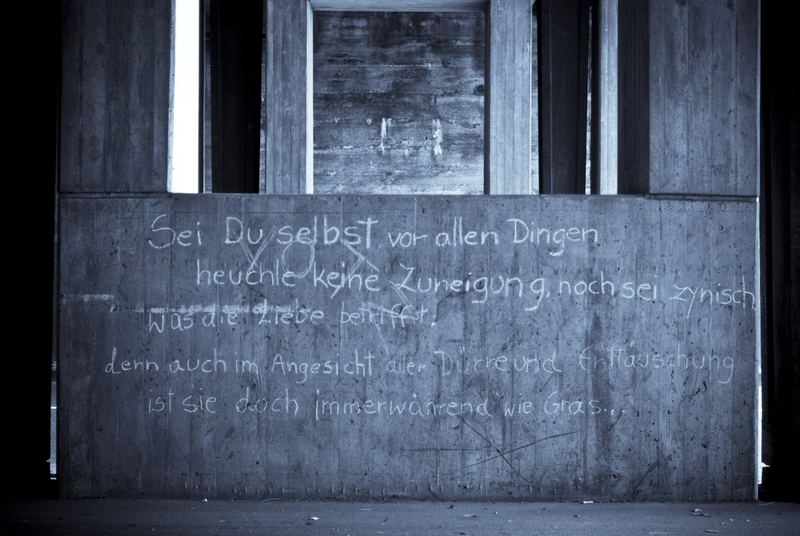 Sei Du selbst vor allen Dingen
heuchle keine Zuneigung, noch sei zynisch
was die Liebe betrifft!
denn auch im Angesicht aller Dürre und Enttäuschung
ist sie doch immerwährend wie Gras...